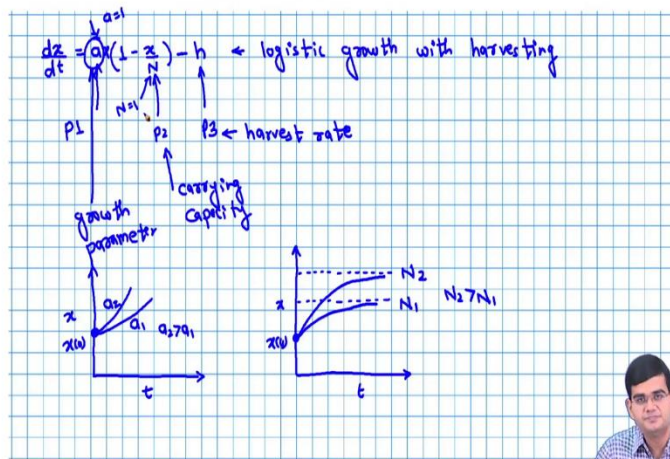 a=1
dx/dt = ax(1 - x/N) - h ← logistic growth with harvesting
N=1
P1 P2 P3 ← harvest rate
carrying capacity
growth parameter
x a2 a1 a2>a1
x(0)
t
x N2 N1 N2>N1
x(0)
t